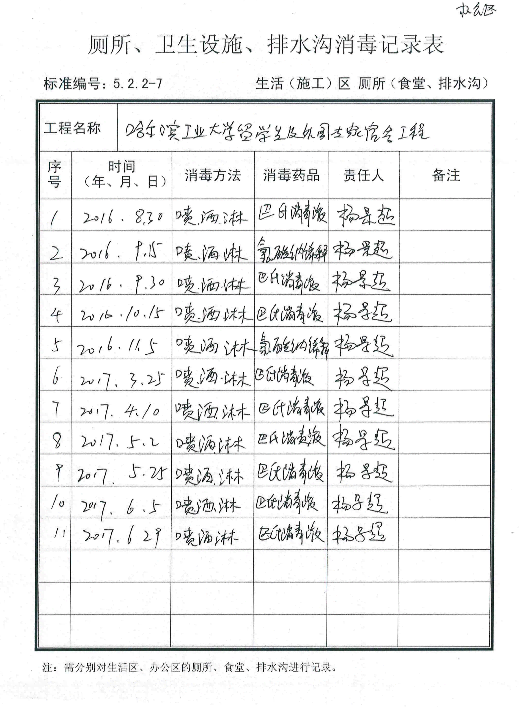 厕所、卫生设施、排水沟消毒记录表
标准编号：5.2.2-7 生活（施工）区 厕所（食堂、排水沟）
工程名称 哈尔滨工业大学留学生及外国专家宿舍工程
序号 时间（年、月、日） 消毒方法 消毒药品 责任人 备注
1 2016.8.30 喷洒淋 巴氏消毒液 杨景超
2 2016.9.15 喷洒淋 杨景超
3 2016.9.30 喷洒淋 巴氏消毒液 杨景超
4 2016.10.15 喷洒淋 巴氏消毒液 杨景超
5 2016.11.5 喷洒淋 杨景超
6 2017.3.25 喷洒淋 巴氏消毒液 杨景超
7 2017.4.10 喷洒淋 巴氏消毒液 杨景超
8 2017.5.2 喷洒淋 巴氏消毒液 杨景超
9 2017.5.25 喷洒淋 巴氏消毒液 杨景超
10 2017.6.5 喷洒淋 巴氏消毒液 杨景超
11 2017.6.29 喷洒淋 巴氏消毒液 杨景超
注：请分别对生活区、办公区的厕所、食堂、排水沟进行记录。